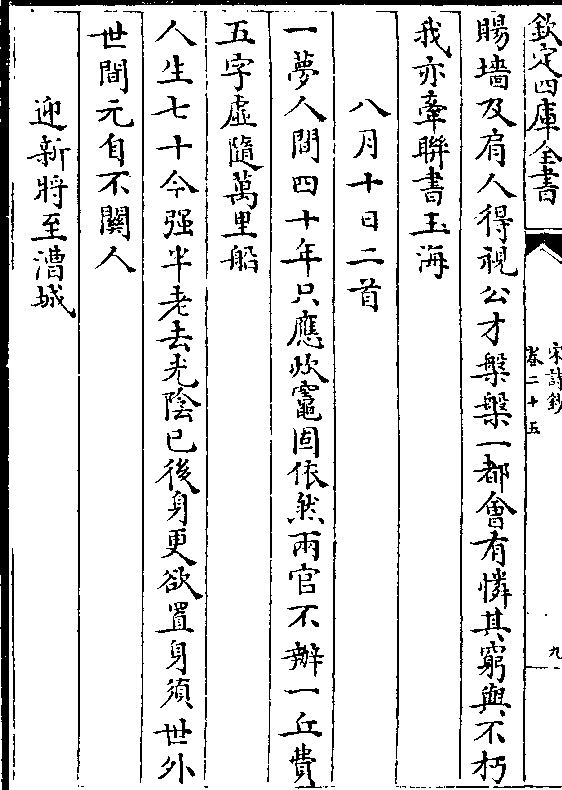 欽定四庫全書
宋詩鈔
卷二十五
九
賜墻及肩人得視公才槃槃一都會有憐其窮與不朽
我亦牽聯書玉海
八月十日二首
一夢人間四十年只應炊竈固依然兩官不辦一丘費
五字虛隨萬里船
人生七十今强半老去光陰已後身更欲置身須世外
世間元自不關人
迎新將至漕城